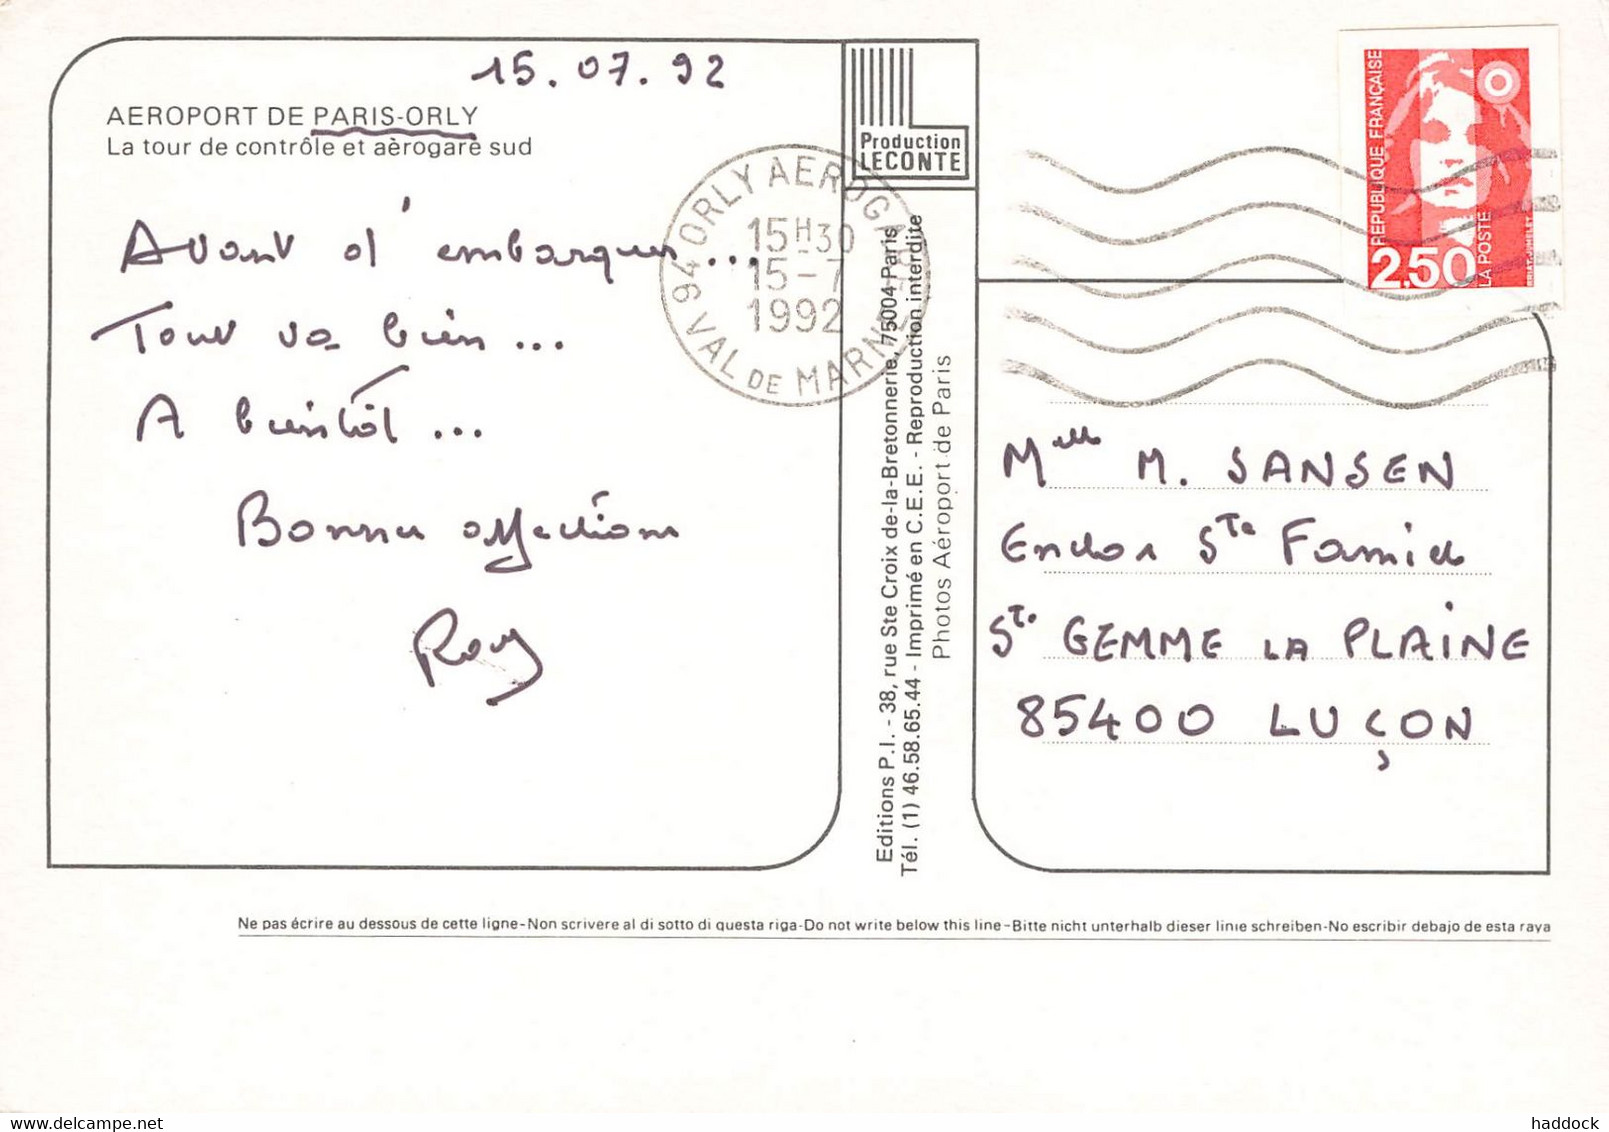 15.07.92
AEROPORT DE PARIS-ORLY
La tour de contrôle et aèrogare sud
Avant d'embarquer...
Tout va bien...
A bientôt...
Bonnes affections
94 ORLY AEROGARE
15H30
15-7
1992
VAL DE MARNE
Production
LECONTE
Editions P.I. - 38, rue Ste Croix de-la-Bretonnerie, 75004 Paris
Tél. (1) 46.58.65.44 - Imprimé en C.E.E. - Reproduction interdite
Photos Aéroport de Paris
REPUBLIQUE FRANÇAISE
2,50
LA POSTE
Melle M. SANSEN
Endor Ste Famille
Ste GEMME LA PLAINE
85400 LUÇON
Ne pas écrire au dessous de cette ligne-Non scrivere al di sotto di questa riga-Do not write below this line-Bitte nicht unterhalb dieser linie schreiben-No escribir debajo de esta raya
haddock